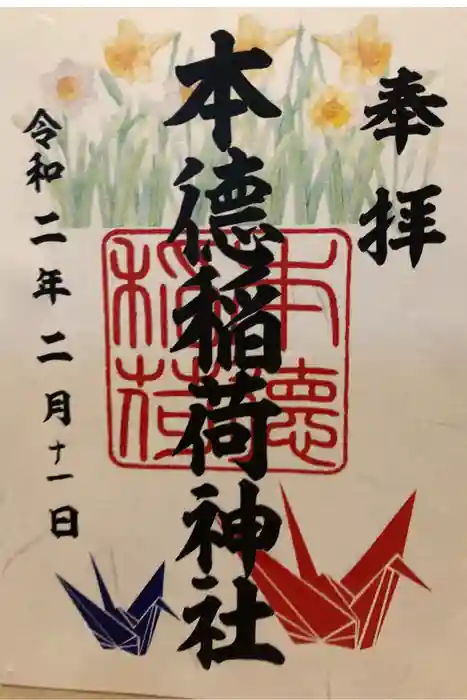 奉拝
本德稲荷神社
本德稲荷
令和二年二月十一日